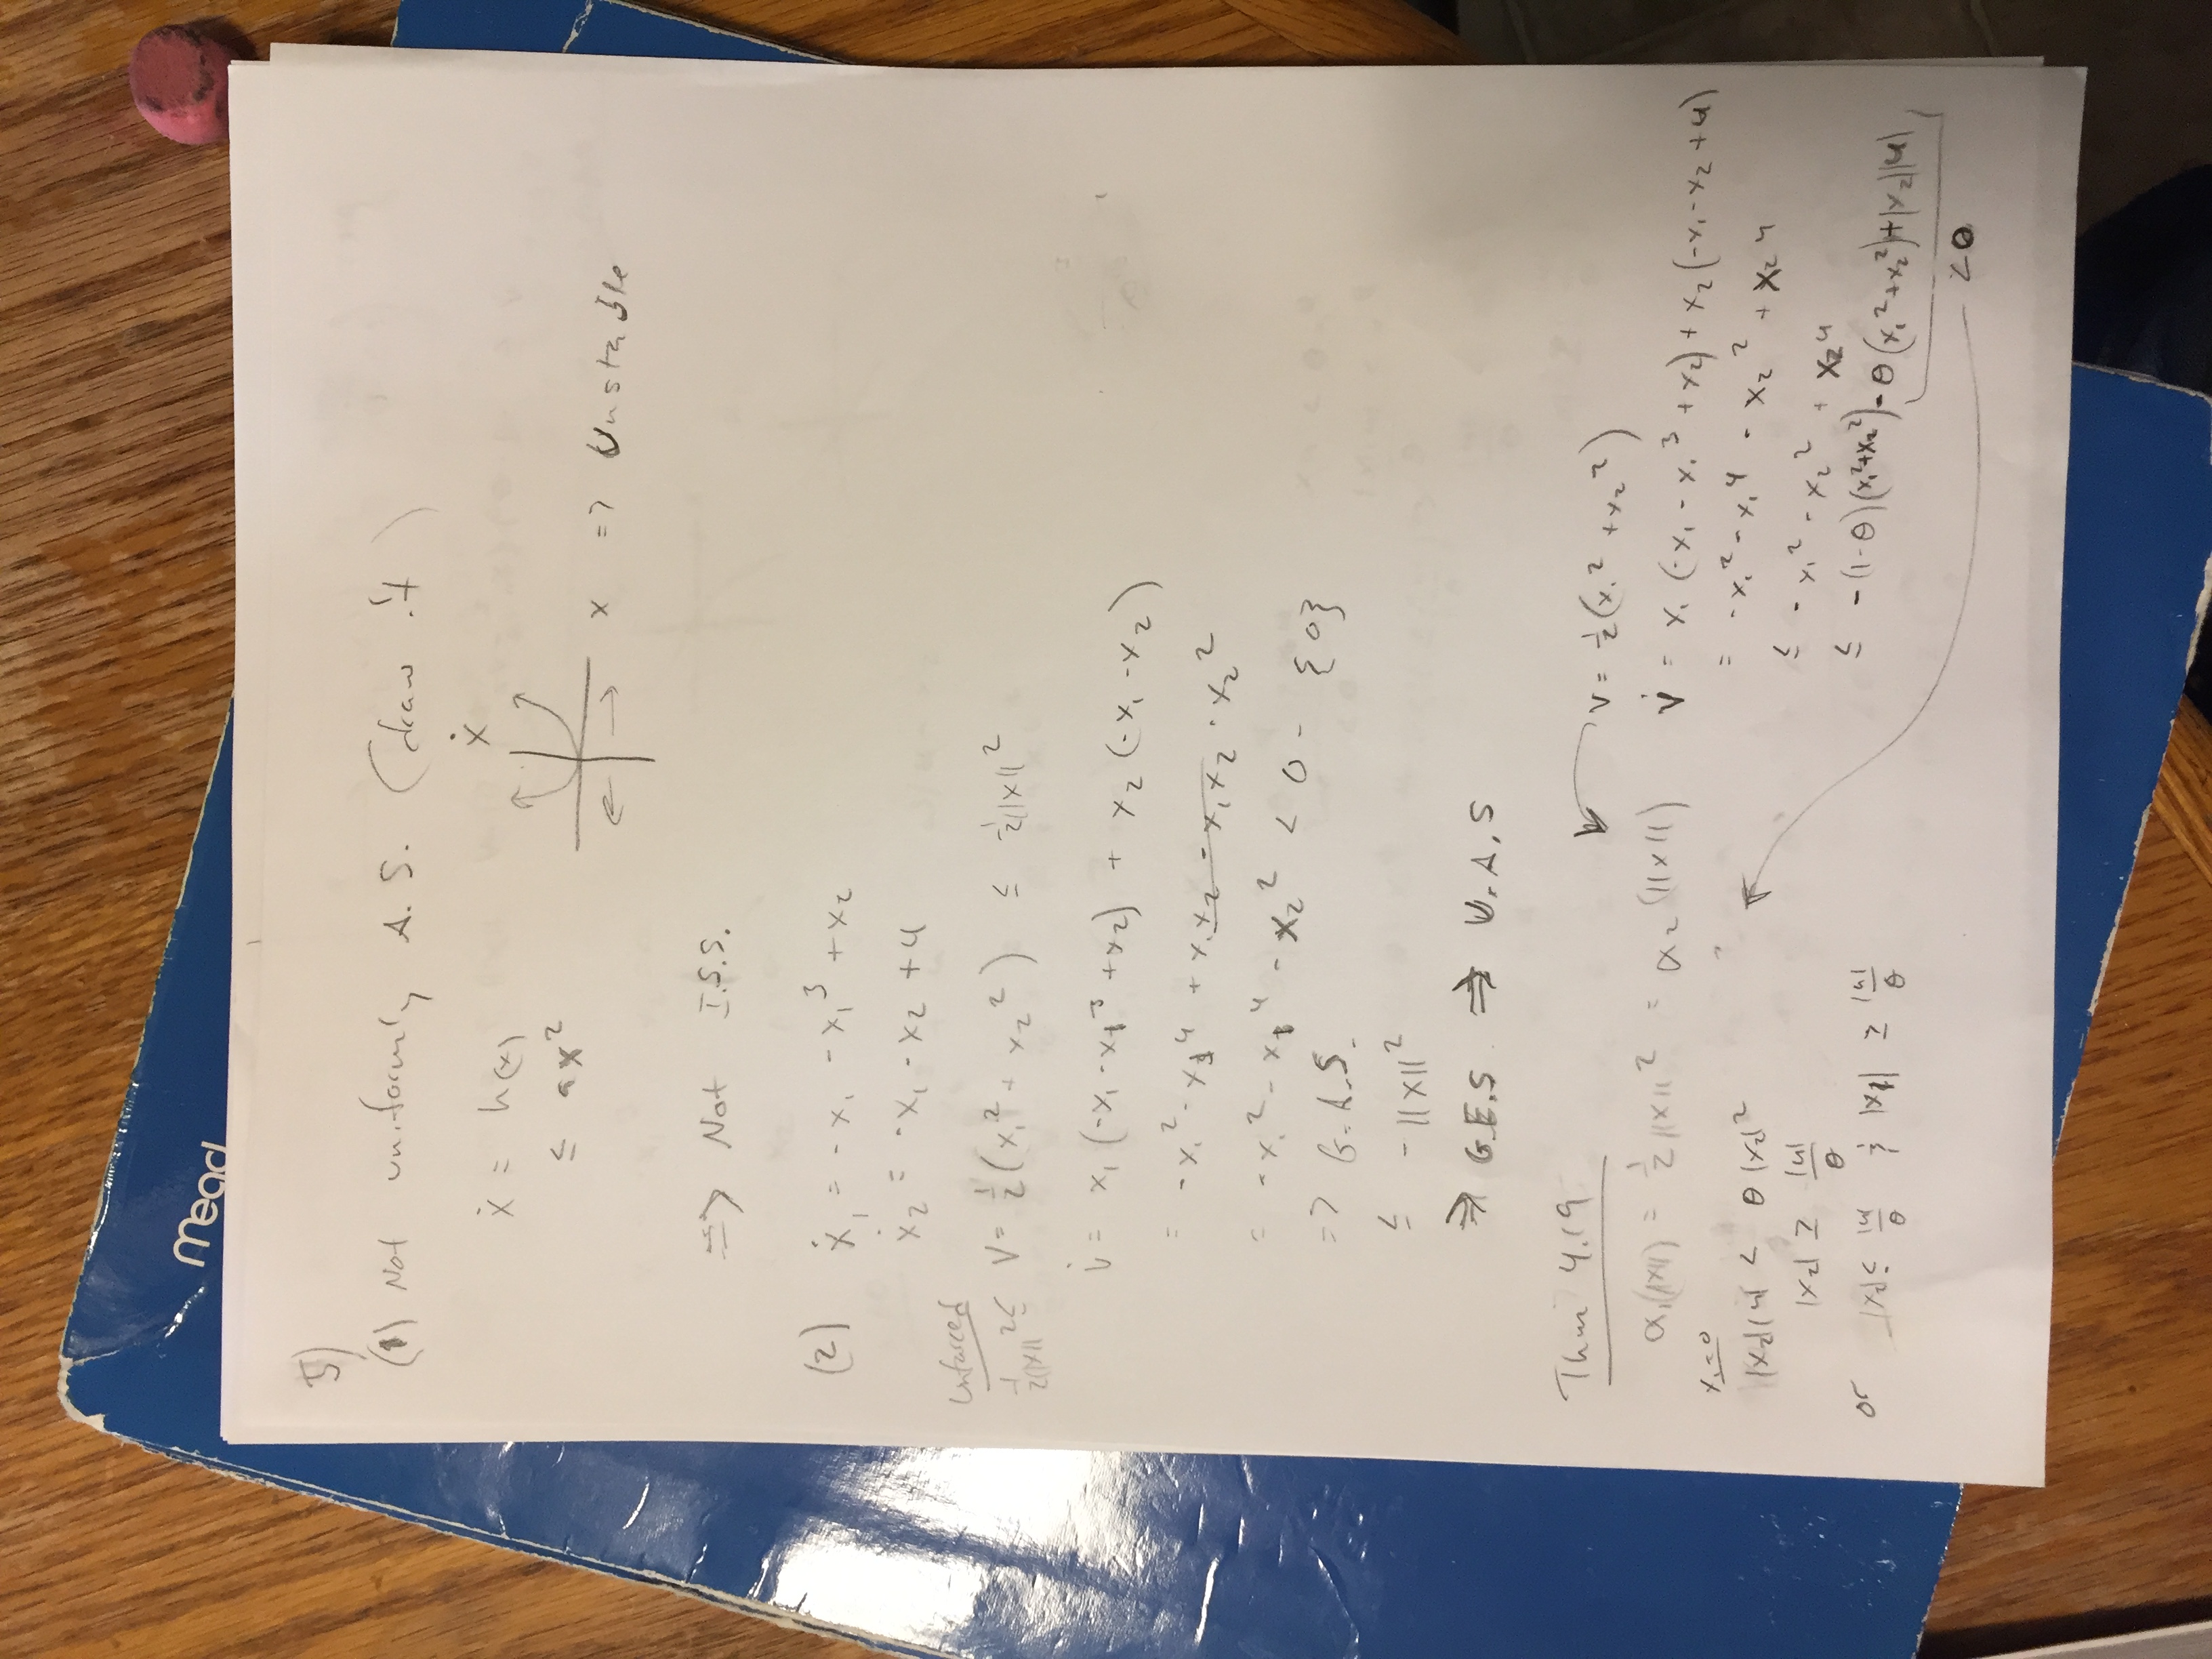 mead
5)
(1) Not uniformly A.S. (draw it)
ẋ = h(x)
≤ ax²
ẋ
x => Unstable
=> Not I.S.S.
(2) ẋ₁ = -x₁ - x₁³ + x₂
ẋ₂ = -x₁ - x₂ + u
Unforced
½||x||² ≤ V = ½(x₁² + x₂²) ≤ ½||x||²
V̇ = x₁(-x₁ - x₁³ + x₂) + x₂(-x₁ - x₂)
= -x₁² - x₁⁴ + x₁x₂ - x₁x₂ - x₂²
= -x₁² - x₁⁴ - x₂² < 0 - {0}
=> G.A.S.
≤ -||x||²
=> G.E.S => U.A.S
Thm 4.19
α₁(||x||) = ½||x||² = α₂(||x||)
x₁=0
|x₂||u| < θ|x₂|²
|x₂| ≥ |u|/θ
or |x₂| ≤ |u|/θ & |x₁| ≥ |u|/θ
V = ½(x₁² + x₂²)
V̇ = x₁(-x₁ - x₁³ + x₂) + x₂(-x₁ - x₂ + u)
= -x₁² - x₁⁴ - x₂² + x₂u
≤ -x₁² - x₂² + x₂u
≤ -(1-θ)(x₁²+x₂²) - θ(x₁²+x₂²) + |x₂||u|
<0